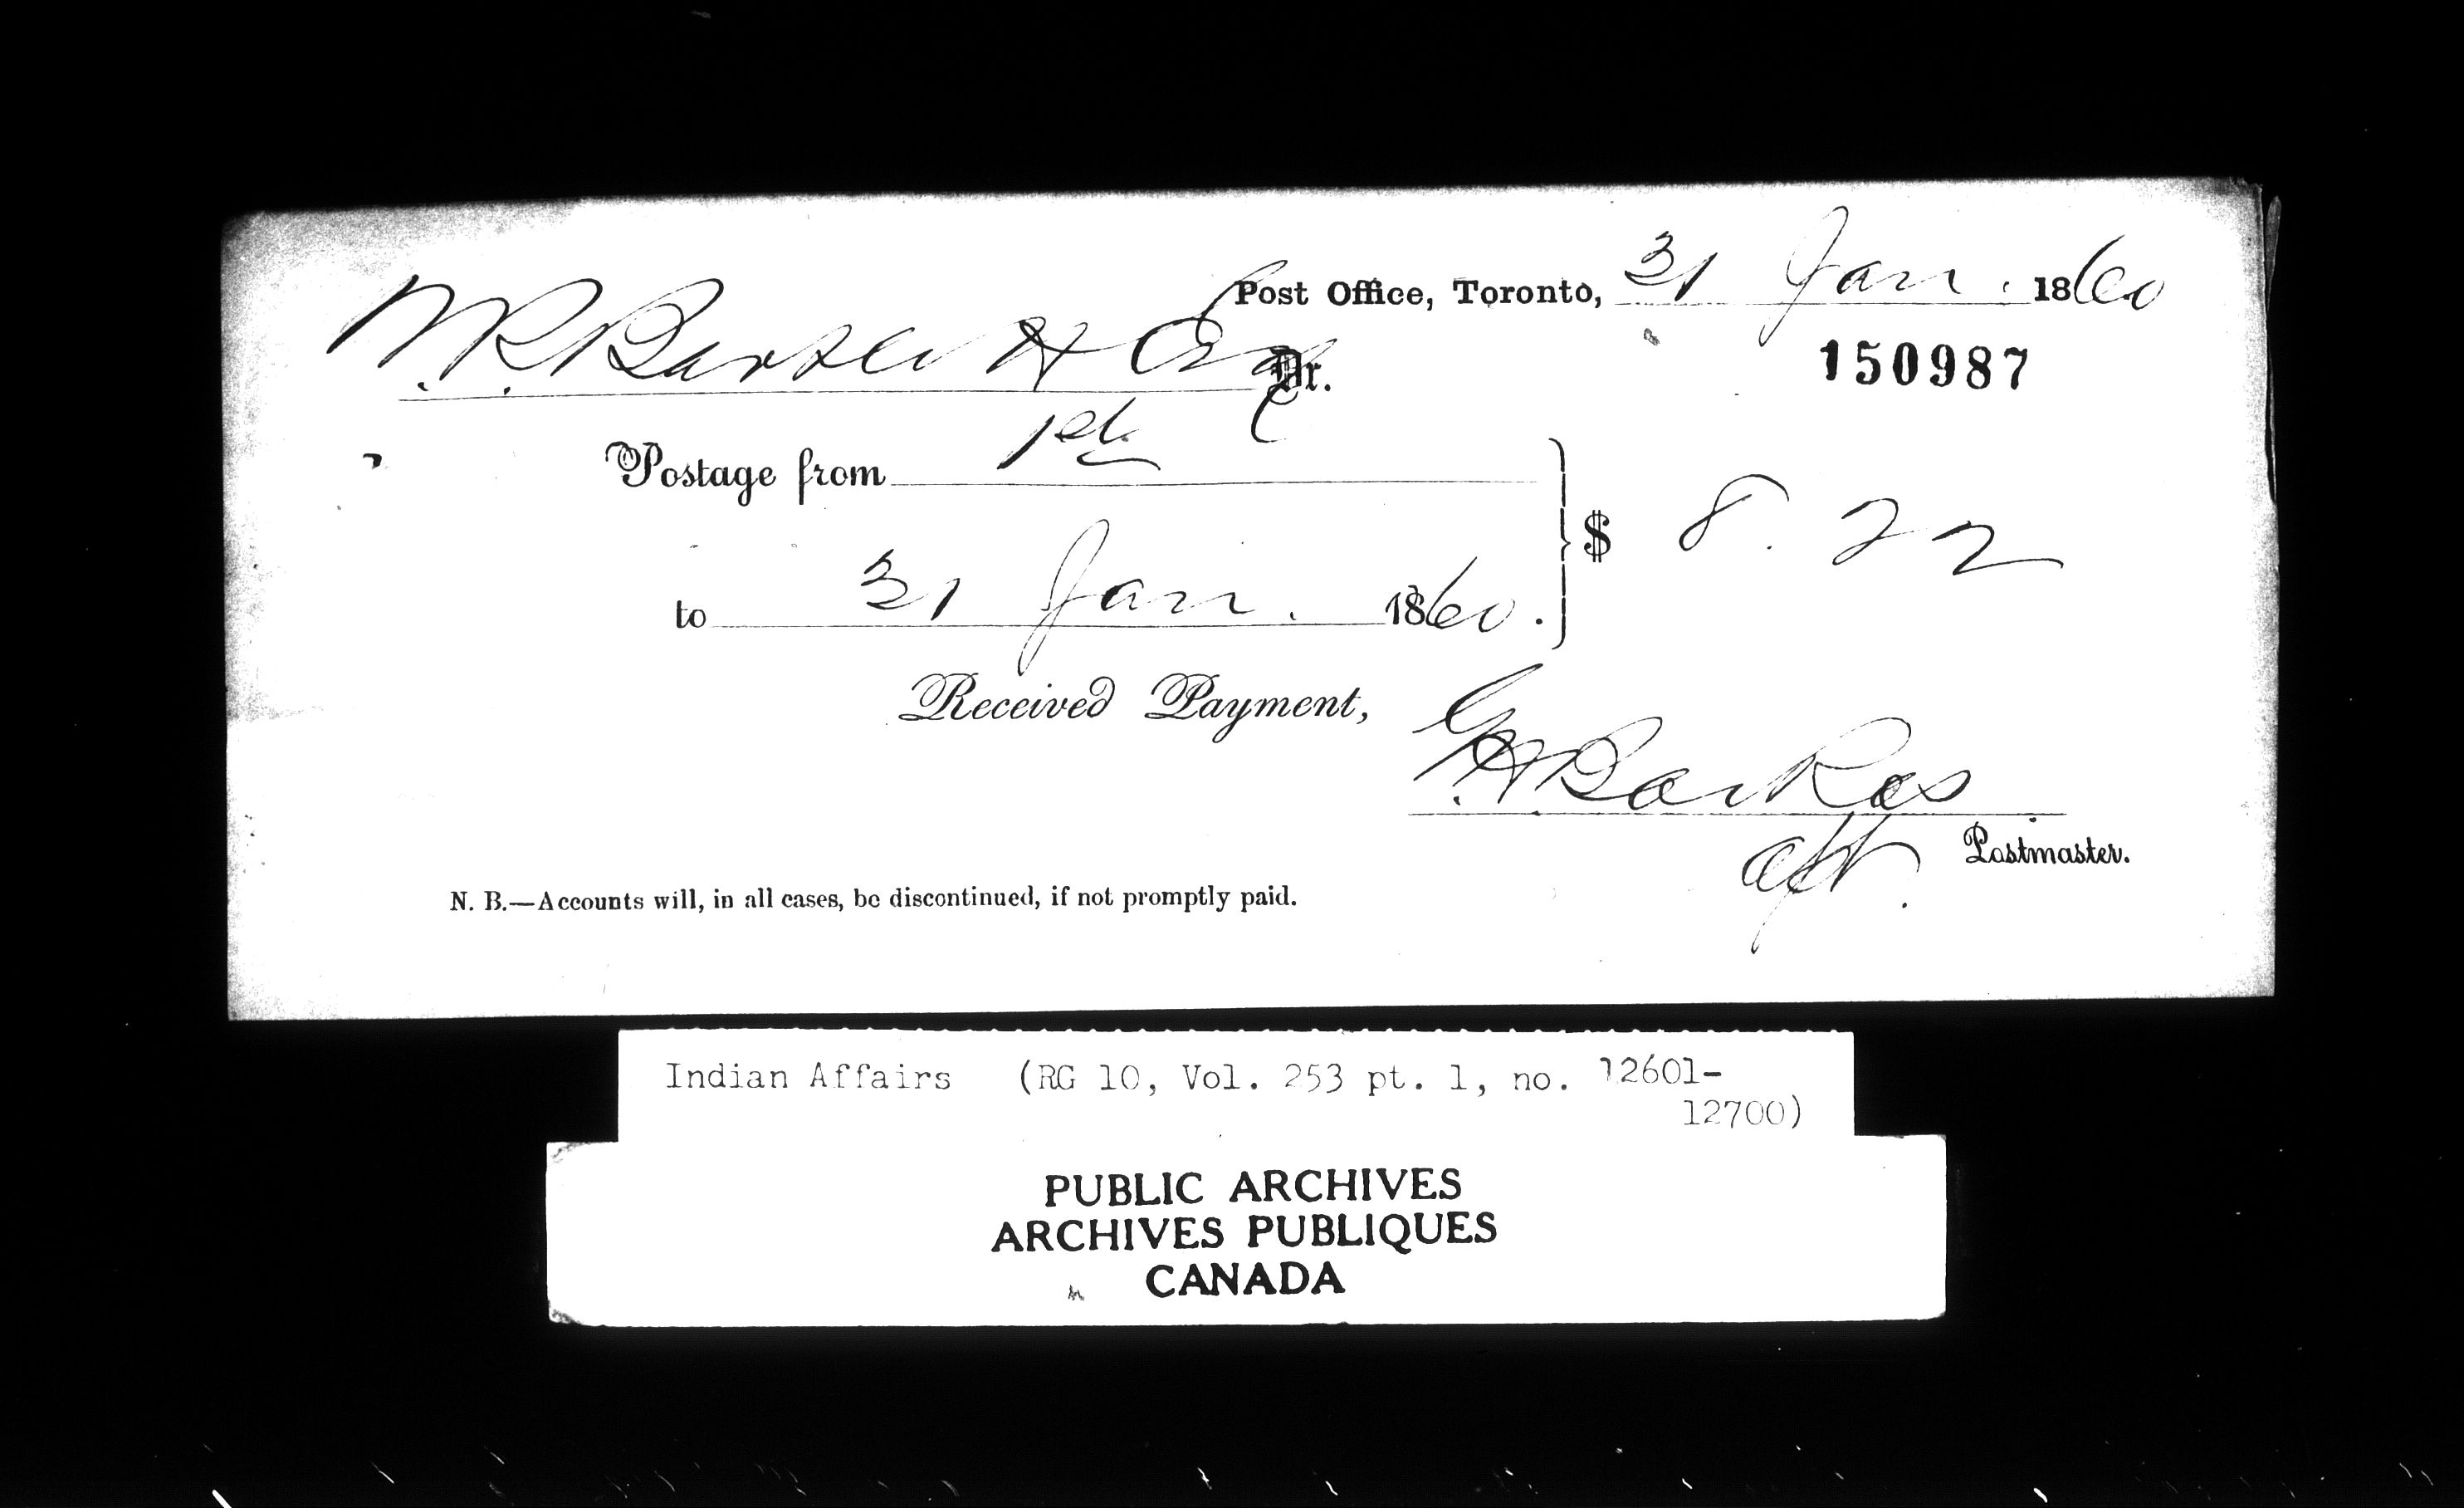 Post Office, Toronto, 31 Jan. 1860
150987
W. R. Esq Dr.
Postage from 1st
to 31 Jan. 1860.
$ 8.22
Received Payment,
Postmaster.
N. B.—Accounts will, in all cases, be discontinued, if not promptly paid.
Indian Affairs (RG 10, Vol. 253 pt. 1, no. 12601-
12700)
PUBLIC ARCHIVES
ARCHIVES PUBLIQUES
CANADA